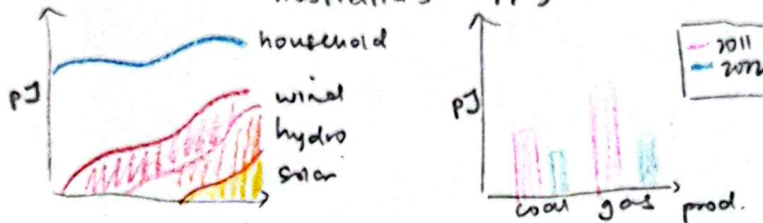 pJ
household
wind
hydro
solar
pJ
2011
2022
coal gas prod.